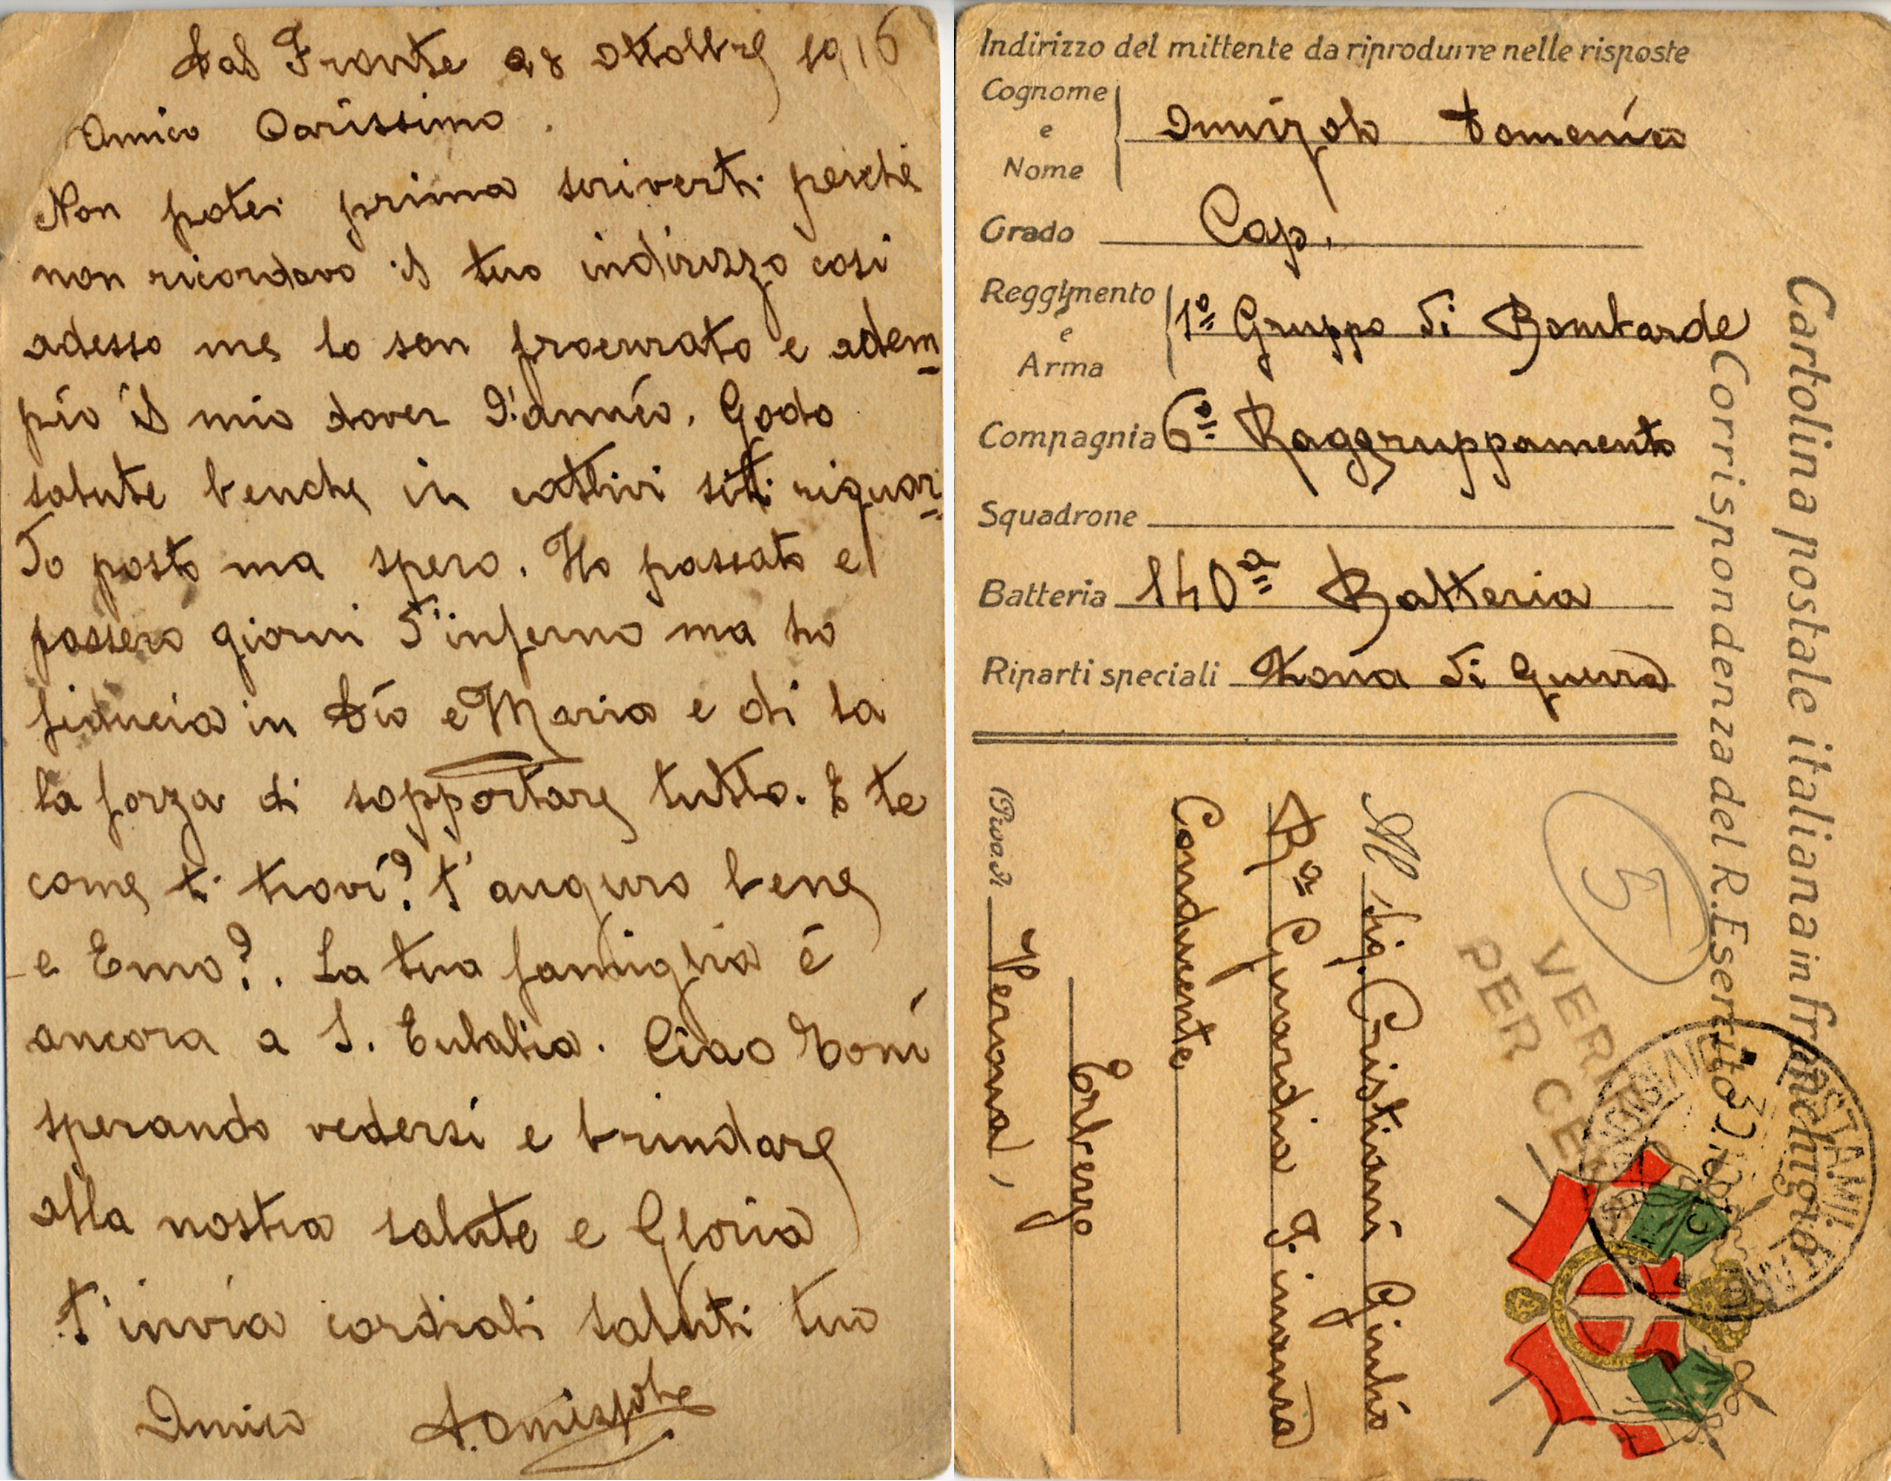 Dal Fronte 28 ottobre 1916
Amico Carissimo.
Non potei prima scriverti perchè
non ricordavo il tuo indirizzo così
adesso me lo son procurato e adem
pio il mio dover d'amico. Godo
salute benche in cattivi siti riguar
do posto ma spero. Ho passato e
passerò giorni d'inferno ma ho
fiducia in Dio e Maria e di la
la forza di sopportare tutto. E te
come ti trovi? t'auguro bene
e Emo?. La tua famiglia è
ancora a S. Eulalia. Ciao Toni
sperando vedersi e brindare
alla nostra salute e Gloria
t'invia cordiali saluti tuo
Amico
Indirizzo del mittente da riprodurre nelle risposte
Cognome
e
Nome
Domenico
Grado Cap.
Reggimento
e
Arma
1º Gruppo di Bombarde
Compagnia 6º Raggruppamento
Squadrone
Batteria 140ª Batteria
Riparti speciali Zona di Guerra
Cartolina postale italiana in franchigia
Corrispondenza del R. Esercito
5
VERI
PER CE
POSTA MI
Al Sig. Cristiani Giulio
Rª Guardia Finanza
Conducente
Erbezzo
(Prov. di Verona)